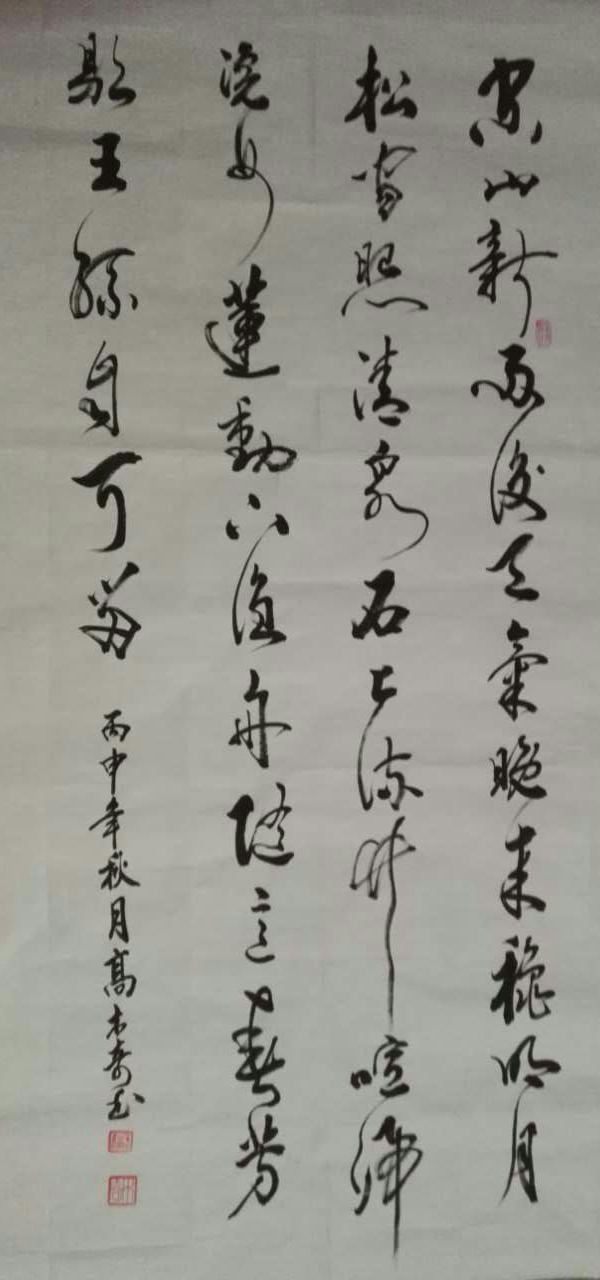 空山新雨後天氣晚来穐明月
松間照清泉石上流竹喧歸
浣女蓮動下漁舟隨意春芳
歇王孫自可留 丙申年秋月高